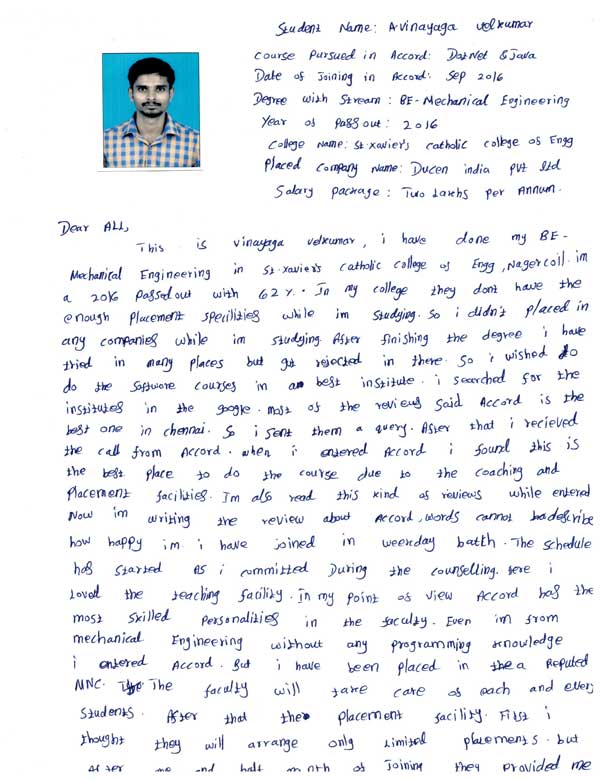 Student Name: A.vinayaga velkumar
Course Pursued in Accord: DotNet & Java
Date of Joining in Accord: Sep 2016
Degree with Stream: BE-Mechanical Engineering
Year of Passout: 2016
College Name: St.Xavier's catholic college of Engg
Placed Company Name: Ducen india Pvt ltd
Salary package: Two Lakhs Per Annum.
Dear ALL,
This is vinayaga velkumar, i have done my BE-
Mechanical Engineering in St.Xavier's catholic college of Engg, Nagercoil. im
a 2016 Passedout with 62%. In my college they dont have the
enough placement specilities while im studying. So i didn't placed in
any companies while im studying. After finishing the degree i have
tried in many places but got rejected in there. So i wished to
do the Software courses in a best institute. i searched for the
institutes in the google. most of the reviews said Accord is the
best one in chennai. So i sent them a query. After that i recieved
the call from Accord. when i entered Accord i found this is
the best place to do the course due to the coaching and
Placement facilities. Im also read this kind of reviews while entered
Now im writing the review about Accord, words cannot describe
how happy im. i have joined in weekday batth. The schedule
has started as i committed During the counselling. Here i
loved the teaching facility. In my point of view Accord has the
most skilled Personalities in the faculty. Even im from
mechanical Engineering without any programming knowledge
i entered Accord. But i have been placed in the a Reputed
MNC. The faculty will take care of each and every
Students. After that the placement facility. First i
thought they will arrange only limited placements. but
After me and half month of Joining they provided me